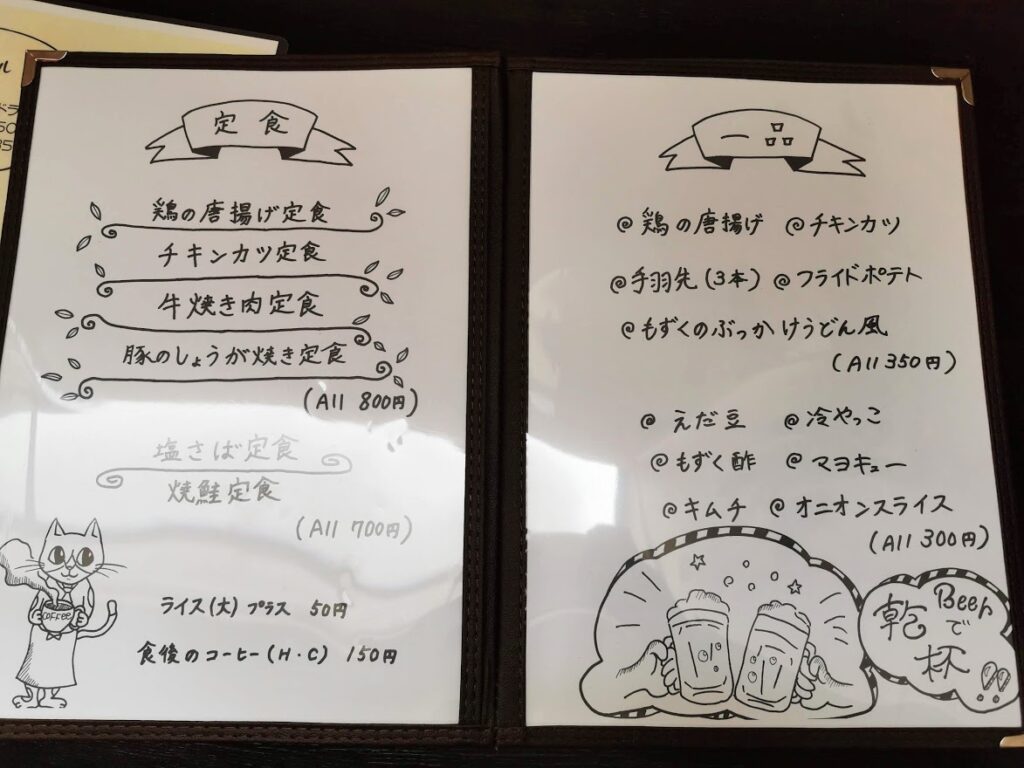 ル
定食
鶏の唐揚げ定食
チキンカツ定食
牛焼き肉定食
豚のしょうが焼き定食
(All 800円)
塩さば定食
焼鮭定食
(All 700円)
ライス(大) プラス 50円
食後のコーヒー(H・C) 150円
COFFEE
一品
@ 鶏の唐揚げ @ チキンカツ
@ 手羽先(3本) @ フライドポテト
@ もずくのぶっかけうどん風
(All 350円)
@ えだ豆 @ 冷やっこ
@ もずく酢 @ マヨキュー
@ キムチ @ オニオンスライス
(All 300円)
Beerで
乾杯!!